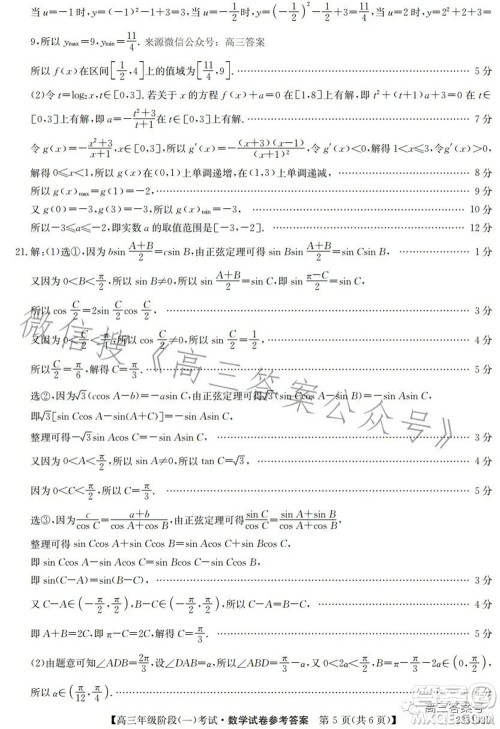 当u=-1时,y=(-1)²-1+3=3. 当u=-1/2时,y=(-1/2)²-1/2+3=11/4. 当u=2时,y=2²+2+3=
9,所以 y_max=9,y_min=11/4. 来源微信公众号:高三答案
所以 f(x)在区间[1/2,4]上的值域为[11/4,9]. …… 5分
(2)令 t=log₂x,t∈[0,3]. 若关于 x 的方程 f(x)+a=0 在[1,8]上有解,即 t²+(t+1)a+3=0 在 t∈
[0,3]上有解,即 a=-(t²+3)/(t+1)在 t∈[0,3]上有解. …… 7分
令 g(x)=-(x²+3)/(x+1),x∈[0,3],所以 g′(x)=-(x+3)(x-1)/(x+1)²,令 g′(x)<0,解得 1<x≤3,令 g′(x)>0,
解得 0≤x<1,所以 g(x)在(0,1)上单调递增,在(1,3)上单调递减, …… 8分
所以 g(x)max=g(1)=-2. …… 9分
又 g(0)=-3,g(3)=-3, …… 10分
所以-3≤a≤-2,即实数 a 的取值范围是[-3,-2]. …… 12分
21.解:(1)选①,因为 bsin (A+B)/2=csin B,由正弦定理可得 sin Bsin (A+B)/2=sin Csin B, …… 1分
又因为 0<B<π/2,所以 sin B≠0,所以 sin (A+B)/2=sin C,即 sin (π-C)/2=sin C,
所以 cos C/2=2sin C/2cos C/2, …… 3分
又因为 0<C/2<π/4,所以 cos C/2≠0,所以 sin C/2=1/2, …… 4分
所以 C/2=π/6,解得 C=π/3. …… 5分
选②,因为√3(ccos A-b)=-asin C,由正弦定理可得√3(sin Ccos A-sin B)=-sin Asin C,
即√3[sin Ccos A-sin(A+C)]=-sin Asin C,
整理可得-√3sin Acos C=-sin Asin C, …… 3分
又因为 0<A<π/2,所以 sin A≠0,所以 tan C=√3, …… 4分
因为 0<C<π/2,所以 C=π/3. …… 5分
选③,因为 c/cos C=(a+b)/(cos A+cos B),由正弦定理可得 sin C/cos C=(sin A+sin B)/(cos A+cos B),
整理可得 sin Ccos A+sin Ccos B=sin Acos C+sin Bcos C,
即 sin Ccos A-sin Acos C=sin Bcos C-sin Ccos B,
即 sin(C-A)=sin(B-C), …… 3分
又 C-A∈(-π/2,π/2),B-C∈(-π/2,π/2),所以 C-A=B-C, …… 4分
即 A+B=2C,所以 C=π/3. …… 5分
(2)由题意可知∠ADB=2π/3,设∠DAB=α,所以∠ABD=π/3-α,又∠CAB∈(π/4,π/2),∠CAD=π/6,
所以 α∈(π/12,π/4). …… 6分
【高三年级阶段(一)考试·数学试卷参考答案 第5页(共6页)】
微信搜《高三答案公众号》
高三答案号